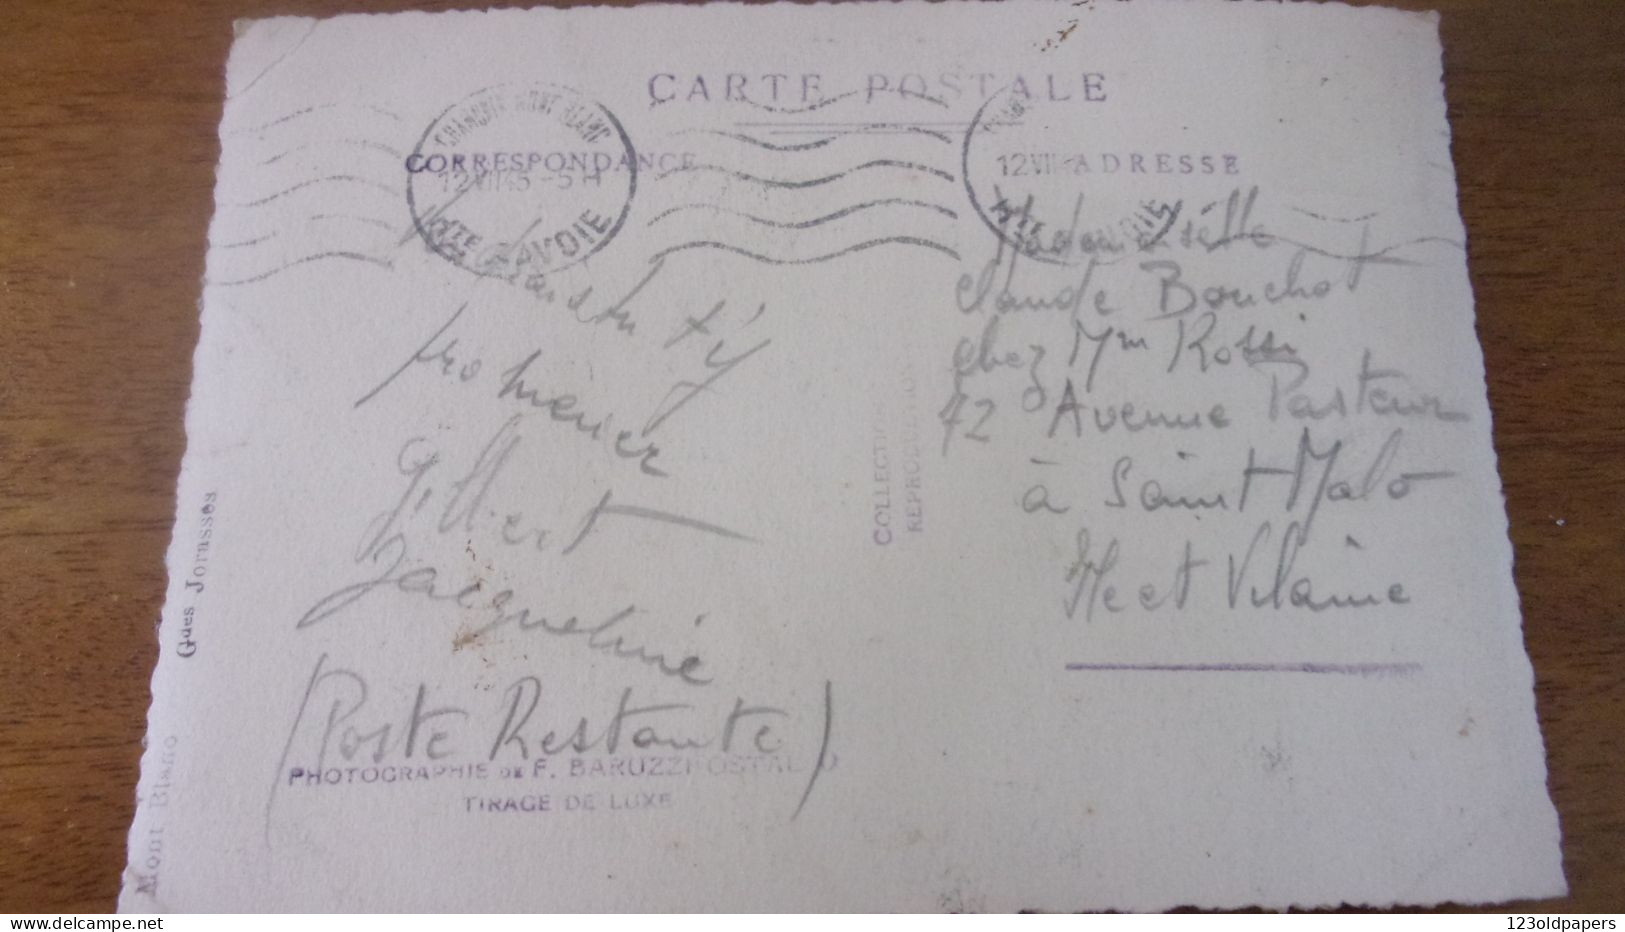 CARTE POSTALE
CORRESPONDANCE
ADRESSE
CHAMONIX MONT BLANC
12 VII 45 - 5 H
HTE SAVOIE
12 VII
HTE SAVOIE
plaisir t'y
promener
Gilbert
Jacqueline
(Poste Restante)
PHOTOGRAPHIE DE F. BARUZZI POSTAL
TIRAGE DE LUXE
Mademoiselle
Claude Bouchot
chez Mm Rossi
72 Avenue Pasteur
à Saint Malo
Ille et Vilaine
COLLECTION
REPRODUCTION
Mont Blanc Gdes Jorasses
123oldpapers
delcampe.net